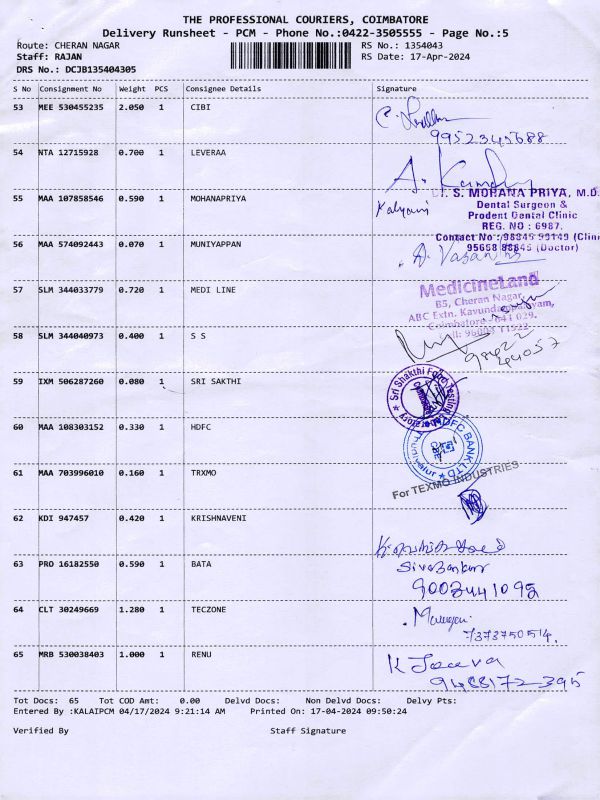 THE PROFESSIONAL COURIERS, COIMBATORE
Delivery Runsheet - PCM - Phone No.:0422-3505555 - Page No.:5
Route: CHERAN NAGAR RS No.: 1354043
Staff: RAJAN RS Date: 17-Apr-2024
DRS No.: DCJB135404305
S No Consignment No Weight PCS Consignee Details Signature
53 MEE 530455235 2.050 1 CIBI
9952345688
54 NTA 12715928 0.700 1 LEVERAA
55 MAA 107858546 0.590 1 MOHANAPRIYA Kalyani
S. MOHANA PRIYA, M.D.
Dental Surgeon &
Prodent Dental Clinic
REG. NO : 6987.
Contact No
56 MAA 574092443 0.070 1 MUNIYAPPAN
(Doctor)
57 SLM 344033779 0.720 1 MEDI LINE
MedicineLand
B5, Cheran Nagar,
ABC Extn. Kavundampalayam,
Coimbatore - 641 029.
Cell: 96003 11522
58 SLM 344040973 0.400 1 S S
59 IXM 506287260 0.080 1 SRI SAKTHI
Sri Shakthi Food Testing Laboratory
60 MAA 108303152 0.330 1 HDFC
HDFC BANK LTD
61 MAA 703996010 0.160 1 TRXMO
For TEXMO INDUSTRIES
62 KDI 947457 0.420 1 KRISHNAVENI
63 PRO 16182550 0.590 1 BATA
9003441092
64 CLT 30249669 1.280 1 TECZONE
7373750514.
65 MRB 530038403 1.000 1 RENU
9488172395
Tot Docs: 65 Tot COD Amt: 0.00 Delvd Docs: Non Delvd Docs: Delvy Pts:
Entered By :KALAIPCM 04/17/2024 9:21:14 AM Printed On: 17-04-2024 09:50:24
Verified By Staff Signature